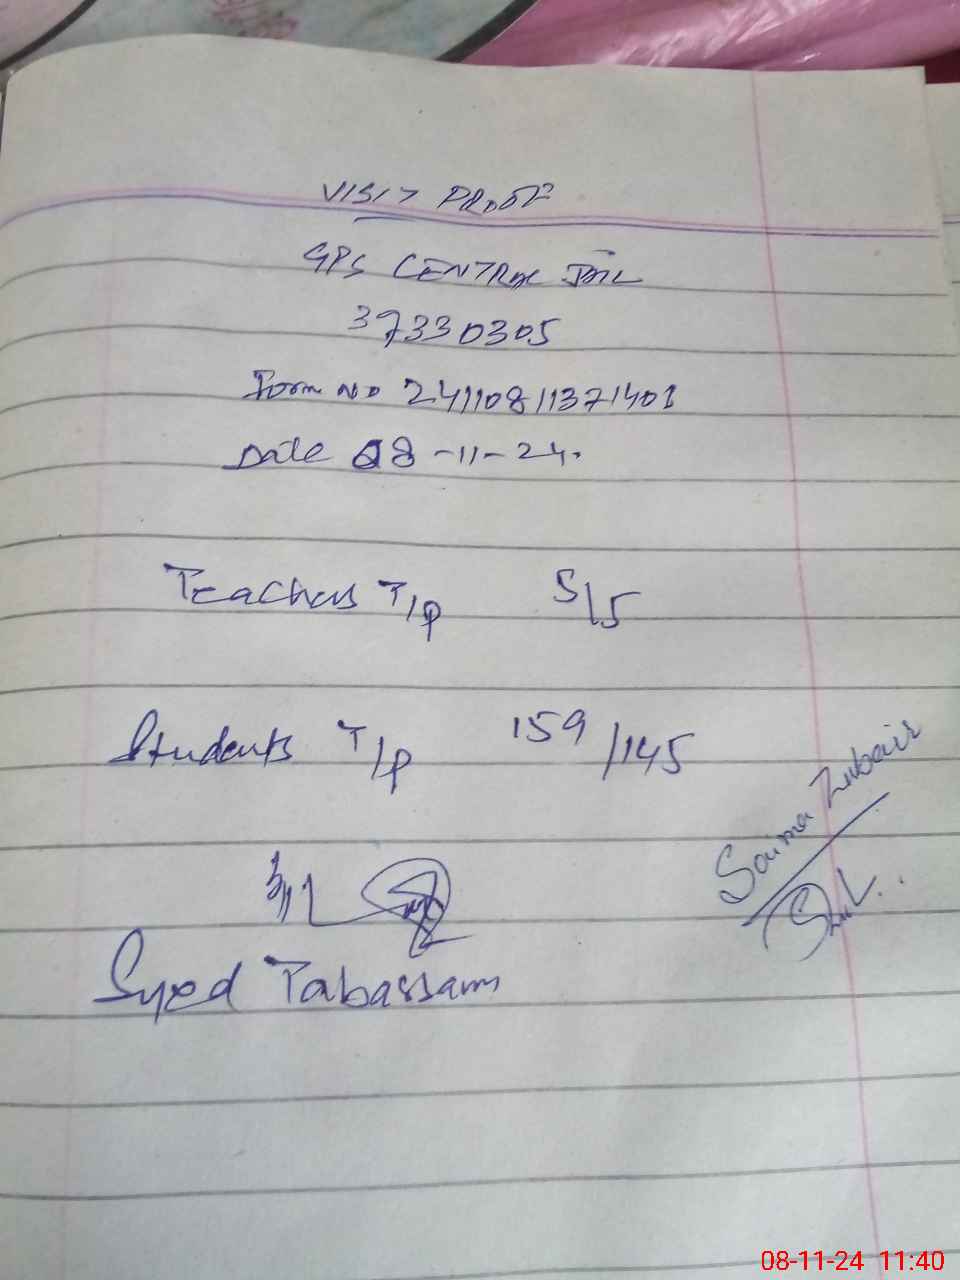 VISIT PROOF
GPS CENTRAL JAIL
37330305
Form No 24110811371401
Date 08-11-24.
Teachers T/P 5/5
Students T/P 159/145
Saima Zubair
Syed Tabassam
08-11-24 11:40